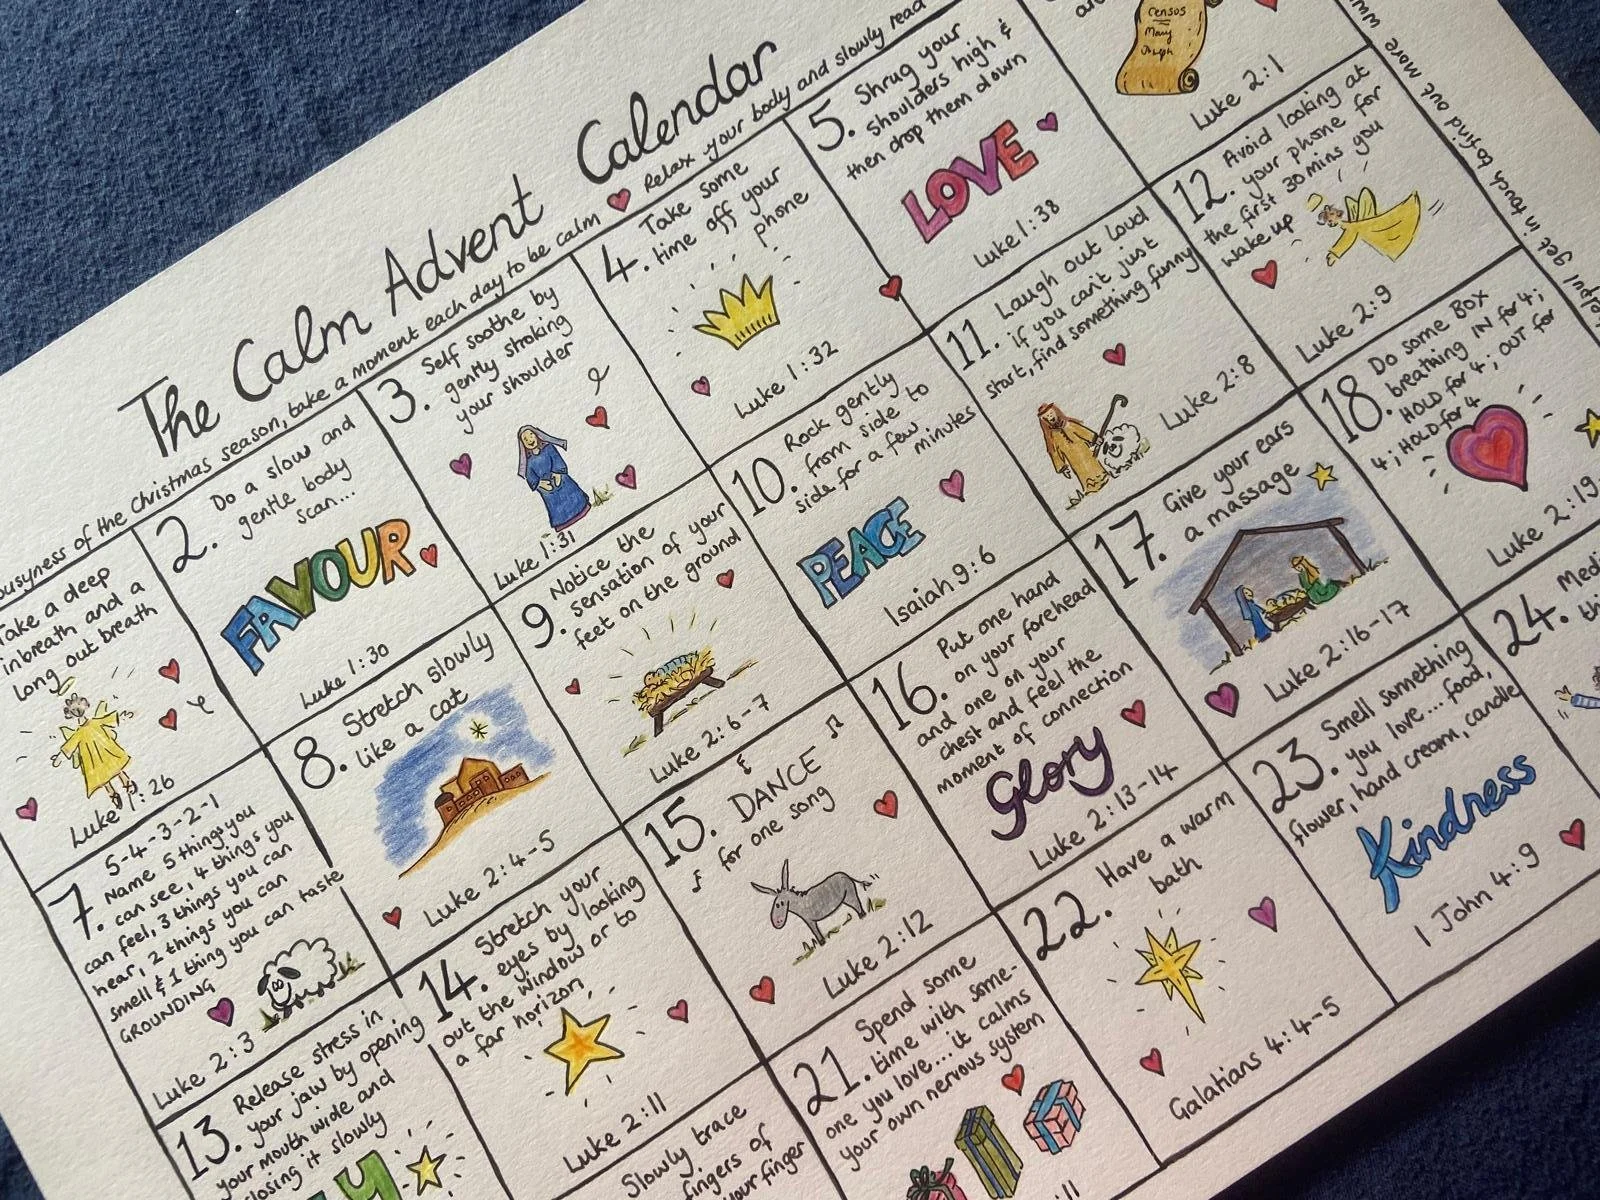 The Calm Advent Calendar
busyness of the Christmas season, take a moment each day to be calm
Relax your body and slowly read
Take a deep
inbreath and a
long out breath
Luke 1:26
2. Do a slow and
gentle body
scan...
FAVOUR
Luke 1:30
3. Self soothe by
gently stroking
your shoulder
Luke 1:31
4. Take some
time off your
phone
Luke 1:32
5. Shrug your
shoulders high &
then drop them down
LOVE
Luke 1:38
Census
Mary
Joseph
Luke 2:1
7. 5-4-3-2-1
Name 5 things you
can see, 4 things you
can feel, 3 things you can
hear, 2 things you can
smell & 1 thing you can taste
GROUNDING
Luke 2:3
8. Stretch slowly
like a cat
Luke 2:4-5
9. Notice the
sensation of your
feet on the ground
Luke 2:6-7
10. Rock gently
from side to
side for a few
minutes
PEACE
Isaiah 9:6
11. Laugh out loud
if you can't just
start, find something funny
Luke 2:8
12. Avoid looking at
your phone for
the first 30 mins you
wake up
Luke 2:9
13. Release stress in
your jaw by opening
your mouth wide and
closing it slowly
14. Stretch your
eyes by looking
out the window or to
a far horizon
Luke 2:11
15. DANCE
for one song
Luke 2:12
16. Put one hand
on your forehead
and one on your
chest and feel the
moment of connection
Glory
Luke 2:13-14
17. Give your ears
a massage
Luke 2:16-17
18. Do some BOX
breathing IN for 4;
HOLD for 4; OUT for
4; HOLD for 4
Luke 2:19
Slowly trace
fingers of
your finger
21. Spend some
time with some-
one you love... it calms
your own nervous system
22. Have a warm
bath
Galatians 4:4-5
23. Smell something
you love... food,
flower, hand cream, candle
Kindness
1 John 4:9
24.
get in touch to find out more www